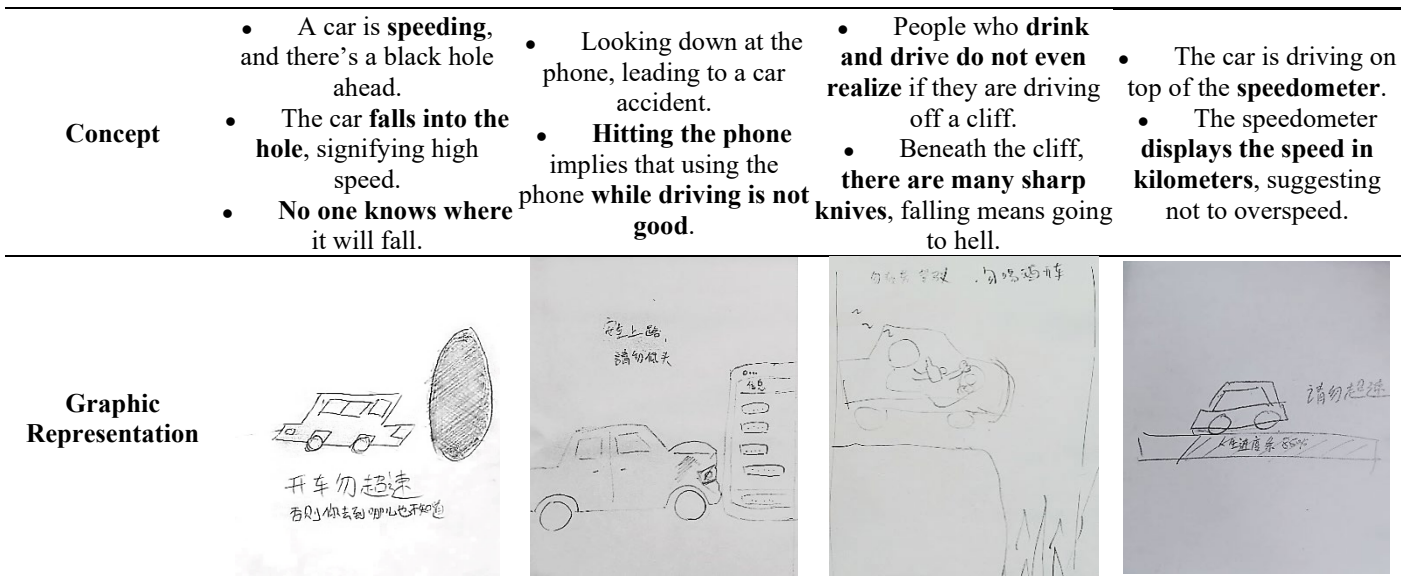 Concept
● A car is speeding,
and there's a black hole
ahead.
● The car falls into the
hole, signifying high
speed.
● No one knows where
it will fall.
● Looking down at the
phone, leading to a car
accident.
● Hitting the phone
implies that using the
phone while driving is not
good.
● People who drink
and drive do not even
realize if they are driving
off a cliff.
● Beneath the cliff,
there are many sharp
knives, falling means going
to hell.
● The car is driving on
top of the speedometer.
● The speedometer
displays the speed in
kilometers, suggesting
not to overspeed.
Graphic
Representation
开车勿超速
否则你去到哪儿也不知道
安全上路,
請勿低头
信息
勿喝酒开车
请勿超速
人生进度条 85%